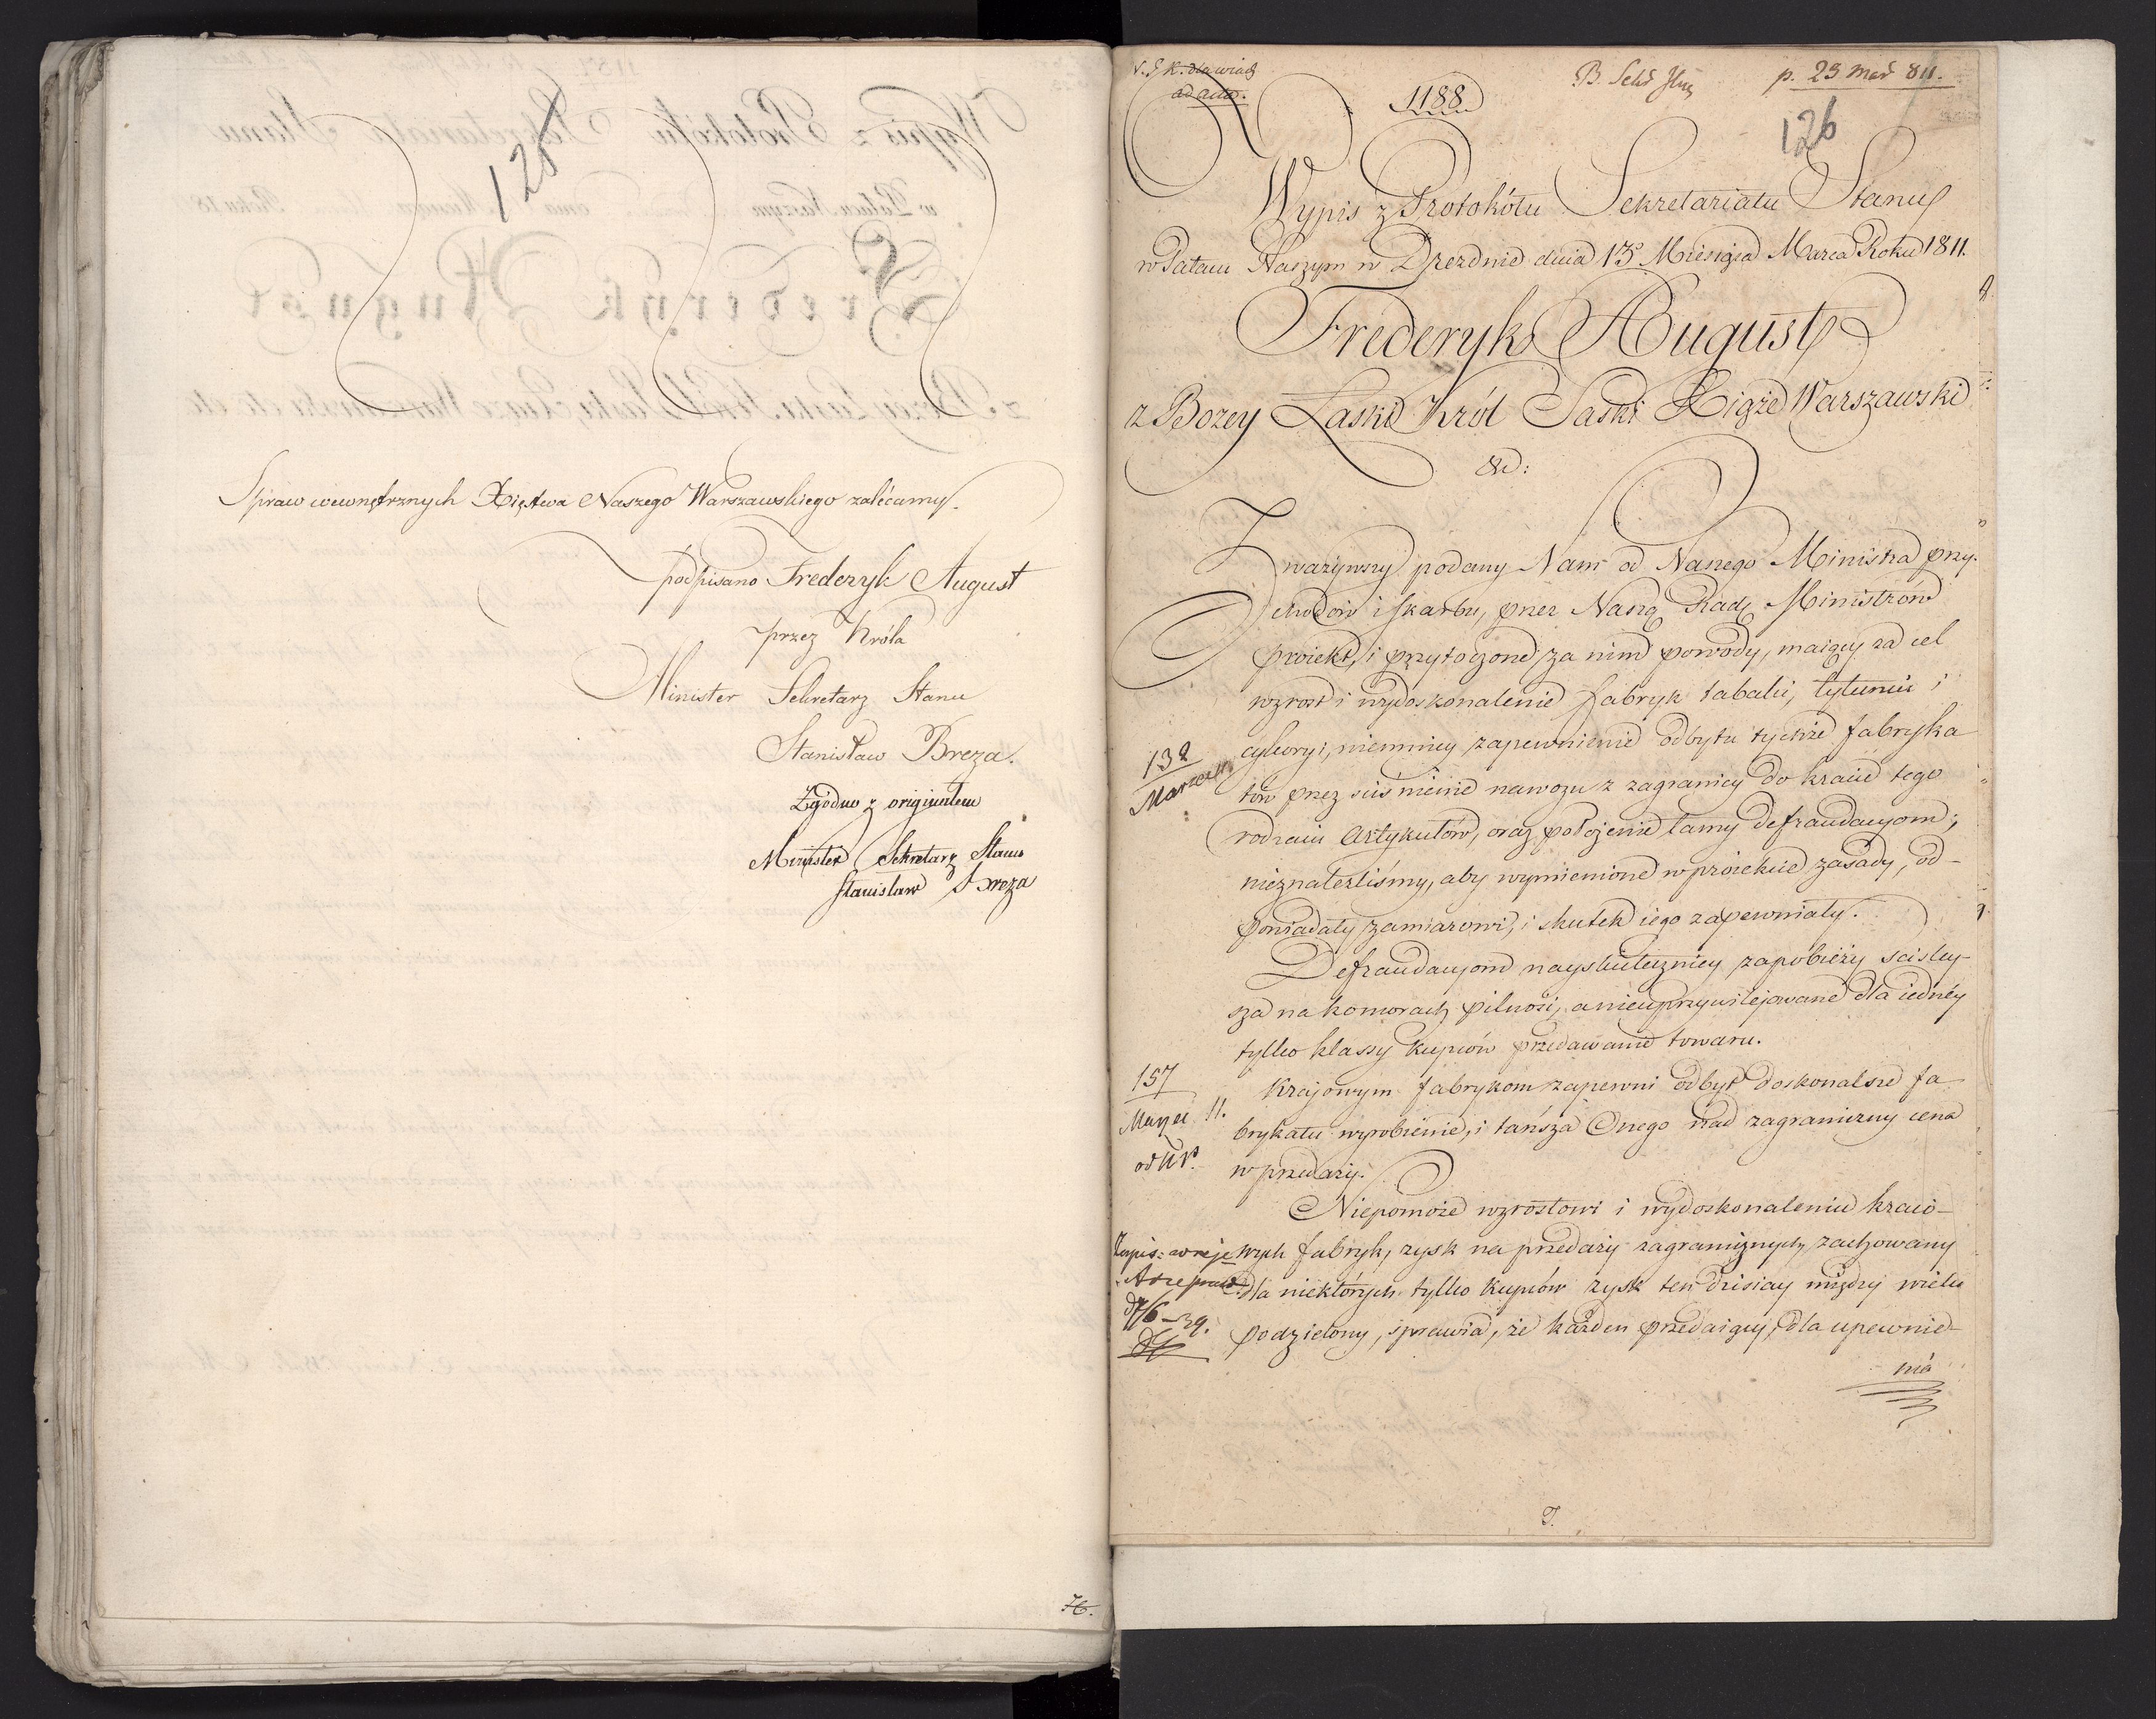 128
Spraw wewnętrznych Xięstwa Naszego Warszawskiego zalécamy.
podpisano Frederyk August
przez Króla
Minister Sekretarz Stanu
Stanisław Breza.
Zgodno z originałem
Minister Sekretarz Stanu
Stanisław Breza
76.
ad acta.
1188
p. 23 Mar 811.
126
Wypis z Protokółu Sekretariatu Stanu
w Pałacu Naszym w Dreznie dnia 13 Miesiąca Marca Roku 1811.
Frederyk August
z Bozey Łaski Król Saski Xiąże Warszawski
&c:
Zważywszy podany Nam od Naszego Ministra przy-
chodów i skarbu, przez Naszą Radę Ministrów
proiekt, i przytoczone za nim powody, maiący za cel
wzrost i wydoskonalenie fabryk tabaki, tytuniu i
cykoryi, niemniey zapewnienie odbytu tychże fabryka
tów przez uiśnienie nawozu z zagranicy do kraiu tego
rodzaiu artykułów, oraz położenie tamy defraudacyom;
nieznaleźliśmy, aby wymienione w proiekcie zasady, od-
powiadały zamiarowi, i skutek iego zapewniały.
Defraudacyom nayskuteczniey zapobieży scisley-
sza na komorach pilność, a nieuprzywilejowane dla iedney
tylko klassy kupców przedawanie towaru.
Krajowym fabrykom zapewni odbyt doskonalsze fa-
brykatu wyrobienie, i tańsza onego nad zagraniczny cena
w przedaży.
Niepomoże wzrostowi i wydoskonaleniu kraio-
wych fabryk, zysk na przedaży zagranicznych, zachowany
dla niektórych tylko kupców zysk ten dzisiay między wielu
podzielony, sprawia, że każden przedaiący, dla upewnie-
nia
132
Marca 11.
157
Marzec 11.